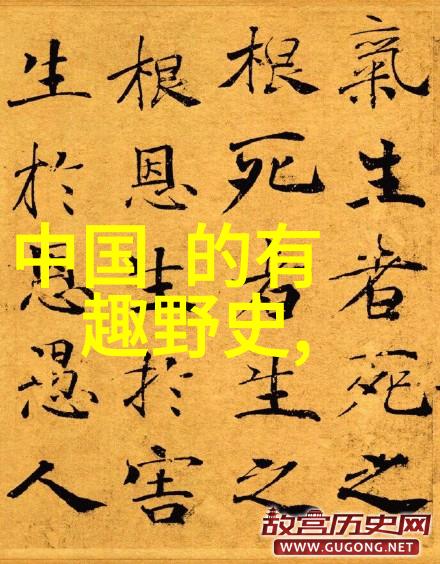 氣生者死之
根死者生之
根恩生於害
生於恩愚人
中国 的有
趣野史,
故宫历史网
WWW.GUGONG.NET